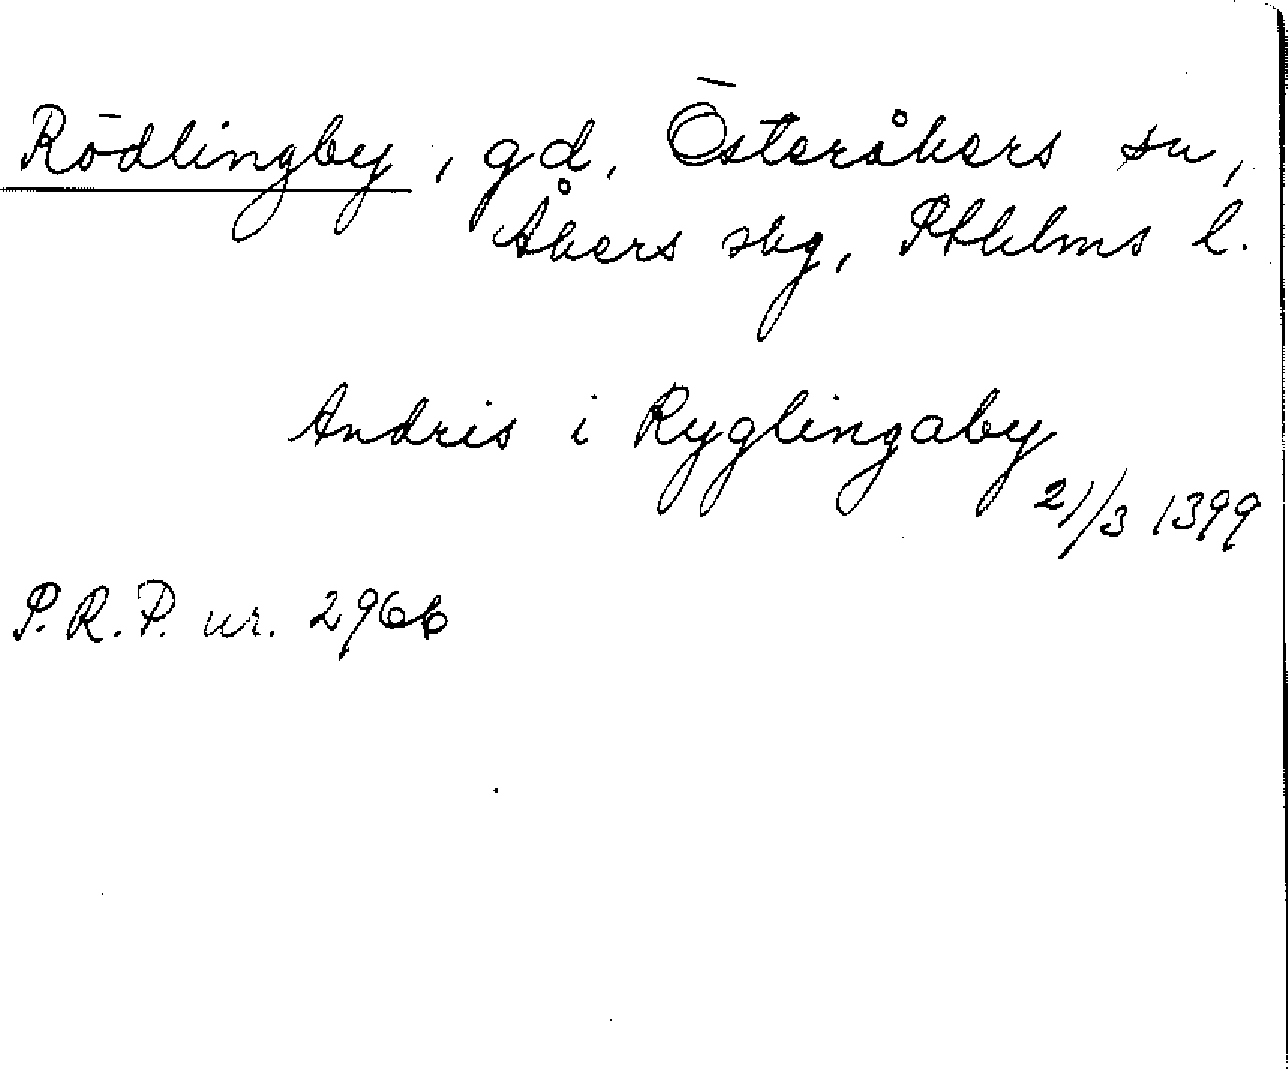 Rödlingby, gd, Österåkers sn,
Åkers skg, Sthlms l.
Andris i Ryglingaby
21/3 1399
P.R.P. nr. 2966